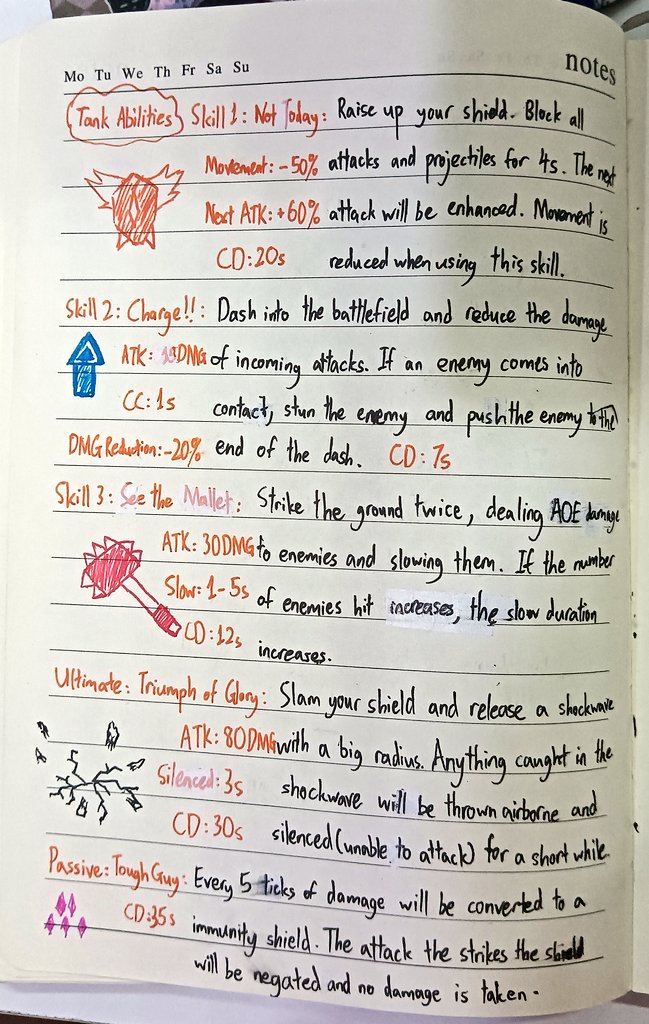 Mo Tu We Th Fr Sa Su
notes
Tank Abilities Skill 1: Not Today: Raise up your shield. Block all
Movement: -50% attacks and projectiles for 4s. The next
Next ATK: +60% attack will be enhanced. Movement is
CD: 20s reduced when using this skill.
Skill 2: Charge!!: Dash into the battlefield and reduce the damage
ATK: DMG of incoming attacks. If an enemy comes into
CC: 1s contact, stun the enemy and push the enemy to the
DMG Reduction: -20% end of the dash. CD: 7s
Skill 3: See the Mallet: Strike the ground twice, dealing AOE damage
ATK: 30DMG to enemies and slowing them. If the number
Slow: 1-5s of enemies hit increases, the slow duration
CD: 12s increases.
Ultimate: Triumph of Glory: Slam your shield and release a shockwave
ATK: 80DMG with a big radius. Anything caught in the
Silenced: 3s shockwave will be thrown airborne and
CD: 30s silenced (unable to attack) for a short while.
Passive: Tough Guy: Every 5 ticks of damage will be converted to a
CD: 35s immunity shield. The attack the strikes the shield
will be negated and no damage is taken.